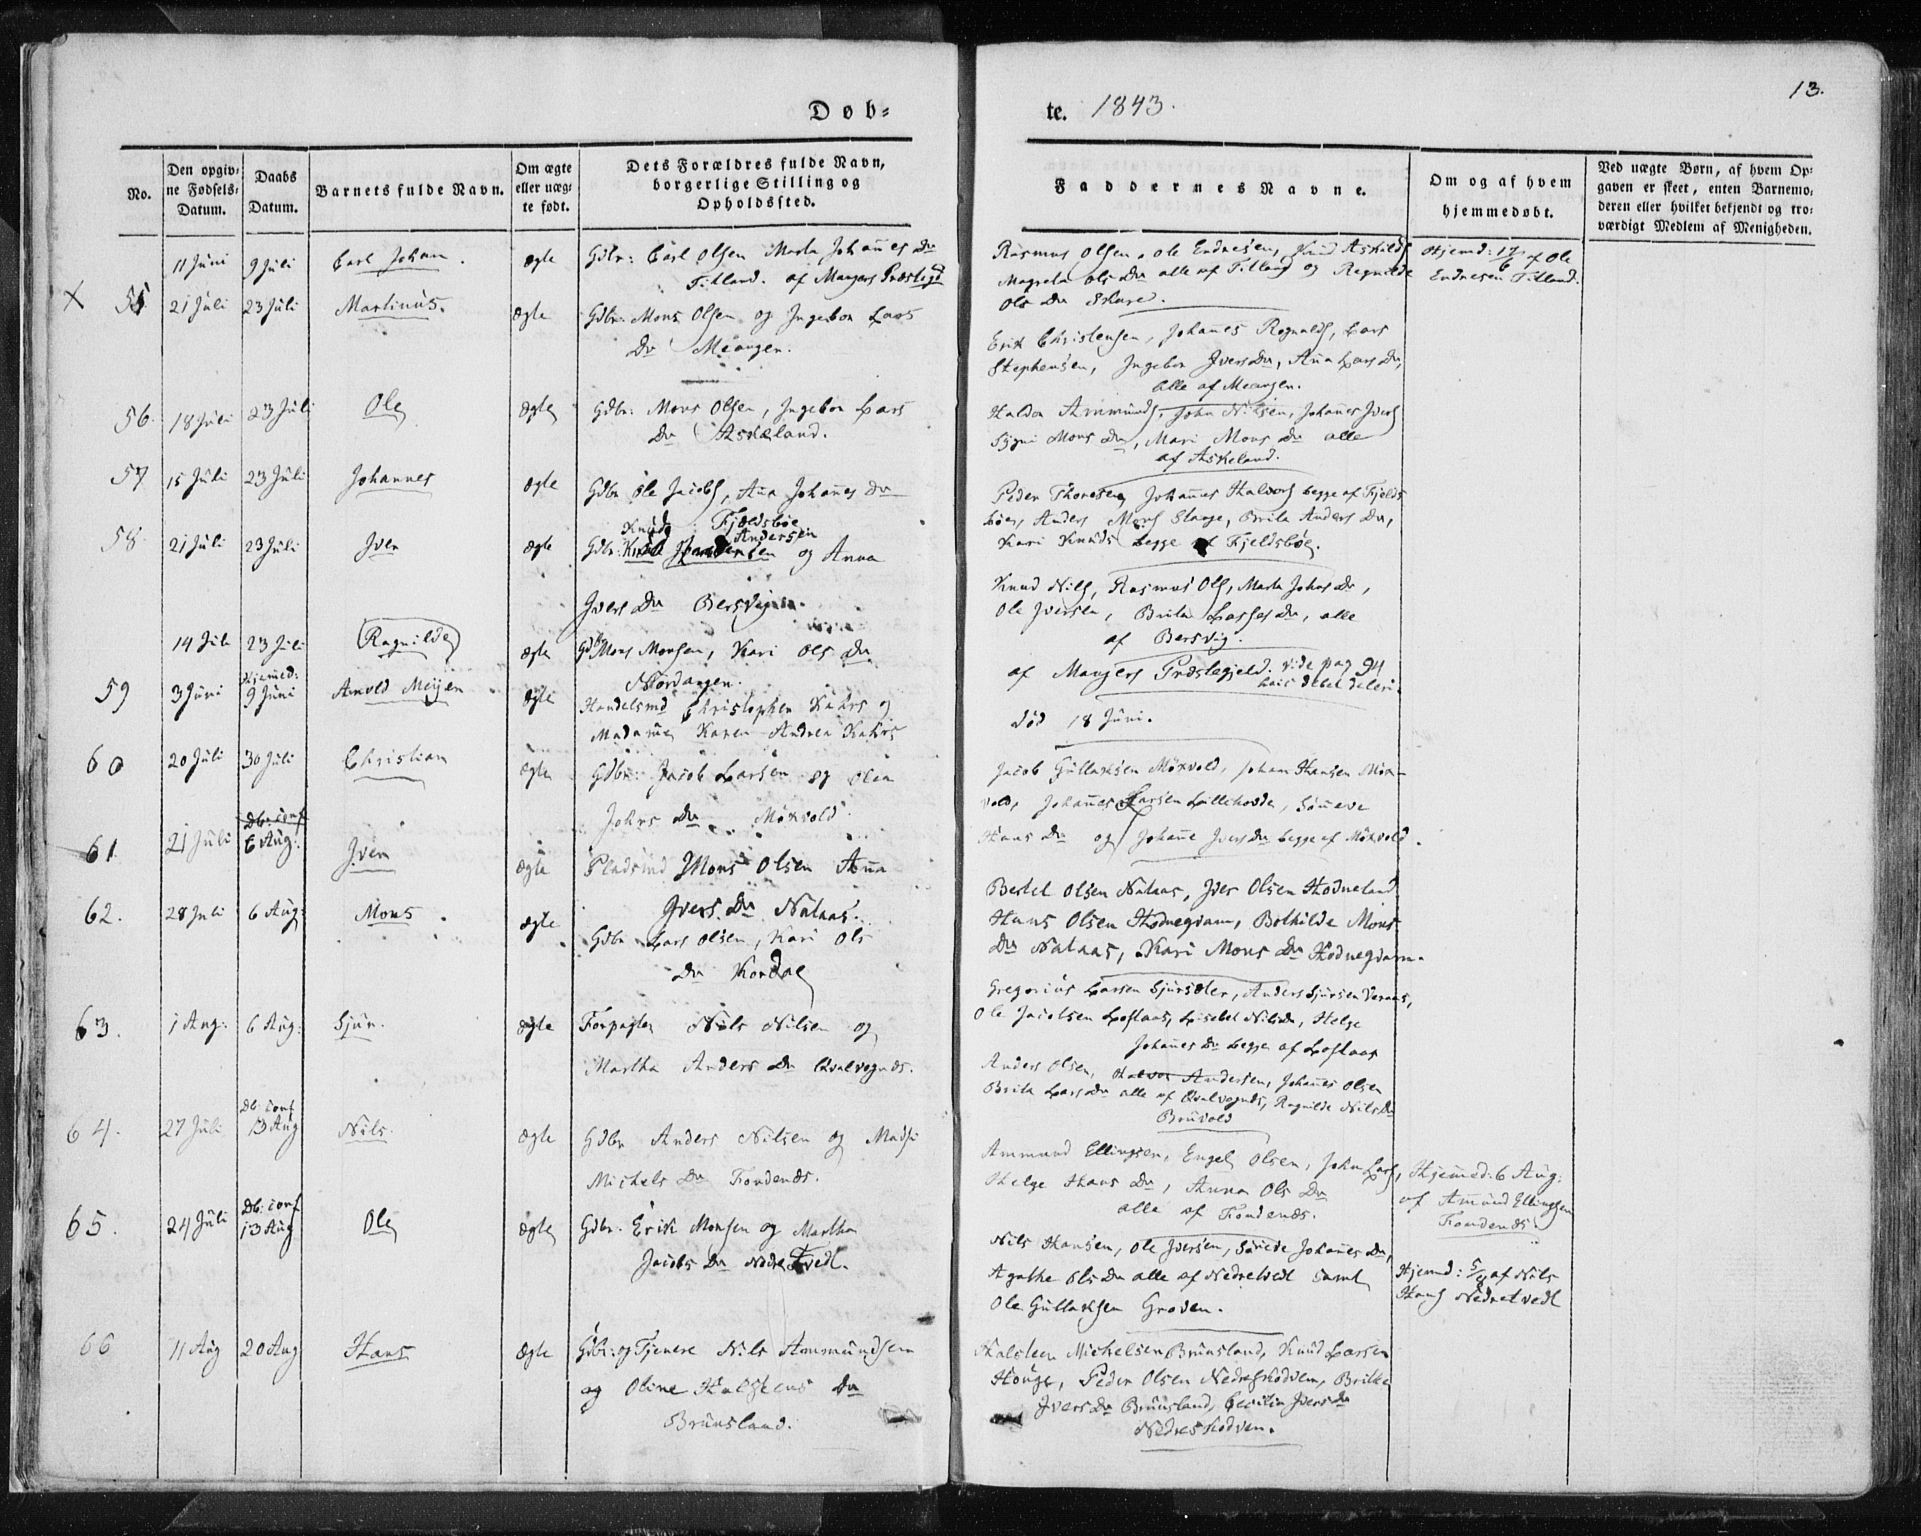 Døb-
te. 1843.
13.
No.
Den opgiv-
ne Fødsels-
Datum.
Daabs
Datum.
Barnets fulde Navn.
Om ægte
eller uæg-
te født.
Dets Forældres fulde Navn,
borgerlige Stilling og
Opholdssted.
Faddernes Navne.
Om og af hvem
hjemmedøbt.
Ved uægte Børn, af hvem Op-
gaven er skeet, enten Barnemo-
deren eller hvilket bekjendt og tro-
værdigt Medlem af Menigheden.
11 Juni 9 Juli Carl Johan. ægte Gdbr: Carl Olsen Marta Johannes Dr
Titland. af Mangers Præstegd
Rasmus Olsen, Ole Endresen, Knud Askilds
Magreta Ols Dr alle af Titland og Regnilde
Ols Dr Skare.
Hjemd: 17/6 af Ole
Endresen Titland.
X 55 21 Juli 23 Juli Martinus. ægte Gdbr: Mons Olsen og Ingebor Lars
Dr Meangen.
Erik Christensen, Johannes Rognalds, Lars
Stephensen, Ingebor Ivers Dr, Anna Lars Dr,
alle af Meangen.
56. 18 Juli 23 Juli Ole ægte Gdbr: Mons Olsen, Ingebor Lars
Dr Askeland.
Haldor Ammunds, John Nilsen, Johannes Ivers
Sygni Mons Dr, Mari Mons Dr alle
af Askeland.
57 15 Juli 23 Juli Johannes ægte Gdbr Ole Jacobs, Anna Johannes Dr
Fjeldsbøe
Peder Thoresen, Johannes Halvors begge af Fjelds
bøe, Anders Mons Stange, Brita Anders Dr,
Kari Knuds begge af Fjeldsbøe.
58 21 Juli 23 Juli Iver ægte Gdbr: Knud Andersen og Anna
Ivers Dr Bersvigen.
Knud Nils, Rasmus Ols, Marta Johns Dr,
Ole Iversen, Brita Lasses Dr, alle
af Bersvig.
14 Juli 23 Juli Ragnilde ægte Gdb Mons Monsen, Kari Ols Dr
Nordangen.
af Mangers Præstegjeld. vide pag 94
59 3 Juni Hjemed: 9 Juni Arnold Meyer ægte Handelsmd Christopher Kahrs og
Madame Karen Andrea Kahrs
død 18 Juni.
60 20 Juli 30 Juli Christian ægte Gdbr: Jacob Larsen og Olia
Johns Dr Mørvold.
Jacob Gullaksen Mørvold, Johan Hansen Mør-
vold, Johannes Larsen Lillehovde, Sønneve
Hans Dr og Johanne Ivers Dr begge af Mørvold.
61. 21 Juli Db: conf 6 Aug: Iver ægte Pladsmd Mons Olsen Anna
Ivers Dr Nataas.
Bertel Olsen Nataas, Iver Olsen Hodneland
Hans Olsen Hodnegvam, Bothilde Mons
Dr Nataas, Kari Mons Dr Hodnegvam.
62. 28 Juli 6 Aug: Mons. ægte Gdbr Lars Olsen, Kari Ols
Dr Kordal
Gregorius Larsen, Anders Sjursen
Ole Jacobsen Loftaas, Lisebet Nils Dr, Helge
Johannes Dr begge af Loftaas
63. 1 Aug: 6 Aug: Sjur. ægte Forpagter Nils Nilsen og
Martha Anders Dr Qvalvognes.
Anders Olsen, Halvor Andersen, Johannes Olsen
Brita Lars Dr alle af Qvalvognes, Ragnilde Nils Dr
Bruvold
64. 27 Juli Db: conf 13 Aug Nils. ægte Gdbr Anders Nilsen og Madsi
Michels Dr Fondenæs.
Ammund Ellingsen, Engel Olsen, John Lars,
Helge Hans Dr, Anna Ols Dr
alle af Fondenæs.
Hjemed: 6 Aug:
af Amund Ellingsen
Fondenæs
65. 24 Juli Db: conf 13 Aug Ole ægte Gdbr. Erik Monsen og Martha
Jacobs Dr Nedre Tvedt.
Nils Hansen, Ole Iversen, Sønede Johannes Dr,
Agathe Ols Dr alle af Nedretvedt samt
Ole Gullaksen Groven.
Hjemd: 5/8 af Nils
Hans Nedretvedt
66 11 Aug 20 Aug Hans ægte Gdbr: og Tjenere Nils Ammundsen
og Oline Halsteens Dr
Bruusland.
Halsteen Michelsen Bruusland, Knud Larsen
Houge, Peder Olsen Nedreskodven, Britha
Ivers Dr Bruusland, Cecilia Ivers Dr
Nedreskodven.